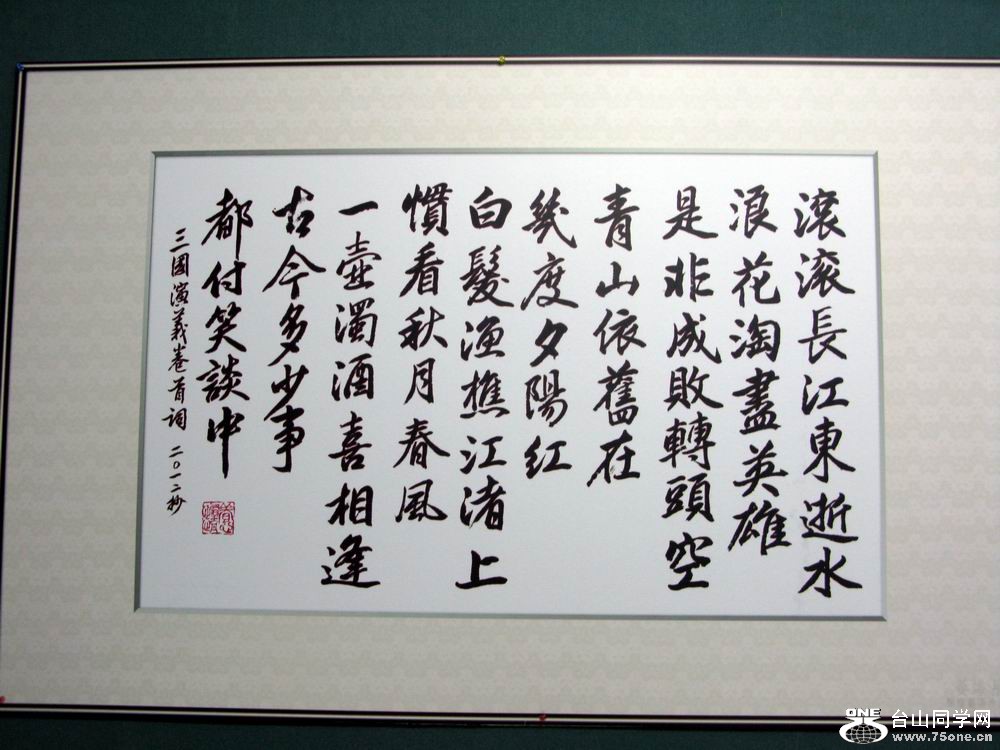 滾滚長江東逝水
浪花淘盡英雄
是非成敗轉頭空
青山依舊在
幾度夕陽红
白髮渔樵江渚上
慣看秋月春風
一壺濁酒喜相逢
古今多少事
都付笑談中
三國演義卷首词
二〇一二抄
ONE
台山同学网
www.75one.cn